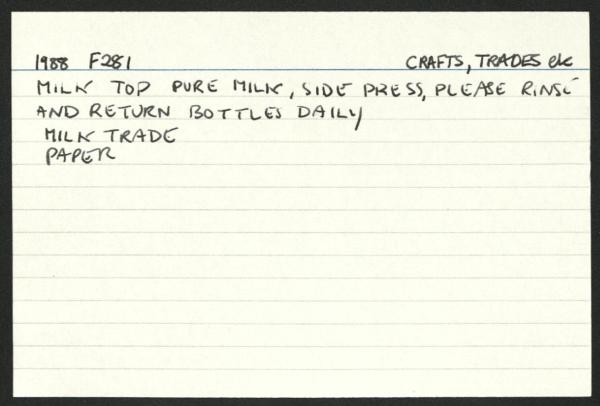 1988 F281 CRAFTS, TRADES etc
MILK TOP PURE MILK, SIDE PRESS, PLEASE RINSE
AND RETURN BOTTLES DAILY
MILK TRADE
PAPER